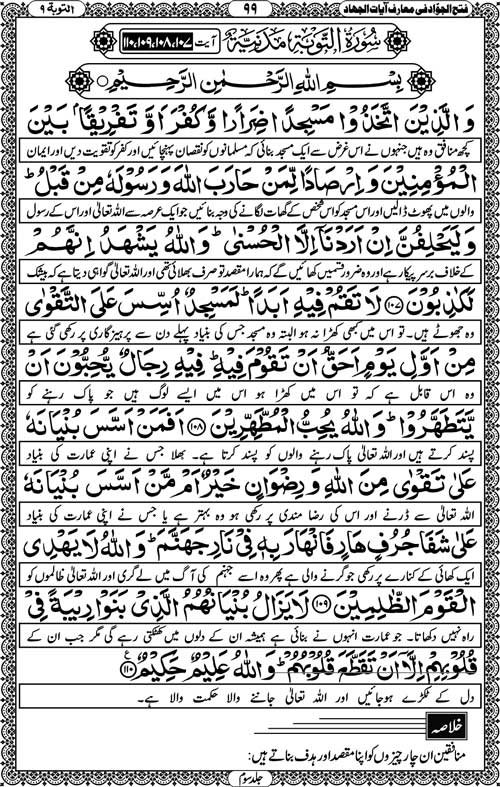 فتح الجوّاد فی معارف آیات الجہاد ۹۹ التوبة ۹
سُوْرَةُ التَّوْبَةِ مَدَنِيَّةٌ آیت ۱۰۷، ۱۰۸، ۱۰۹، ۱۱۰
بِسْمِ اللهِ الرَّحْمٰنِ الرَّحِيْمِ
وَالَّذِيْنَ اتَّخَذُوْا مَسْجِدًا ضِرَارًا وَّكُفْرًا وَّ تَفْرِيْقًۢا بَيْنَ
کچھ منافق وہ ہیں جنہوں نے اس غرض سے ایک مسجد بنائی کہ مسلمانوں کو نقصان پہنچائیں اور کفر کو تقویت دیں اور ایمان
الْمُؤْمِنِيْنَ وَاِرْصَادًا لِّمَنْ حَارَبَ اللهَ وَرَسُوْلَهٗ مِنْ قَبْلُ ؕ
والوں میں پھوٹ ڈالیں اور اس مسجد کو اس شخص کے گھات لگانے کی وجہ بنائیں جو ایک عرصہ سے اللہ تعالیٰ اور اس کے رسول
وَلَيَحْلِفُنَّ اِنْ اَرَدْنَاۤ اِلَّا الْحُسْنٰى ؕ وَاللهُ يَشْهَدُ اِنَّهُمْ
کے خلاف برسر پیکار ہے اور وہ ضرور قسمیں کھائیں گے کہ ہمارا مقصد تو صرف بھلائی تھی اور اللہ تعالیٰ گواہی دیتا ہے کہ بیشک
لَكٰذِبُوْنَ ۝۱۰۷ لَا تَقُمْ فِيْهِ اَبَدًا ؕ لَمَسْجِدٌ اُسِّسَ عَلَى التَّقْوٰى
وہ جھوٹے ہیں۔ تو اس میں کبھی کھڑا نہ ہو البتہ وہ مسجد جس کی بنیاد پہلے دن سے پرہیزگاری پر رکھی گئی ہے
مِنْ اَوَّلِ يَوْمٍ اَحَقُّ اَنْ تَقُوْمَ فِيْهِ ؕ فِيْهِ رِجَالٌ يُّحِبُّوْنَ اَنْ
وہ اس قابل ہے کہ تو اس میں کھڑا ہو اس میں ایسے لوگ ہیں جو پاک رہنے کو
يَّتَطَهَّرُوْا ؕ وَاللهُ يُحِبُّ الْمُطَّهِّرِيْنَ ۝۱۰۸ اَفَمَنْ اَسَّسَ بُنْيَانَهٗ
پسند کرتے ہیں اور اللہ تعالیٰ پاک رہنے والوں کو پسند کرتا ہے۔ بھلا جس نے اپنی عمارت کی بنیاد
عَلٰى تَقْوٰى مِنَ اللهِ وَرِضْوَانٍ خَيْرٌ اَمْ مَّنْ اَسَّسَ بُنْيَانَهٗ
اللہ تعالیٰ سے ڈرنے اور اس کی رضا مندی پر رکھی ہو وہ بہتر ہے یا جس نے اپنی عمارت کی بنیاد
عَلٰى شَفَا جُرُفٍ هَارٍ فَانْهَارَ بِهٖ فِيْ نَارِ جَهَنَّمَ ؕ وَاللهُ لَا يَهْدِى
ایک کھائی کے کنارے پر رکھی جو گرنے والی ہے پھر وہ اسے جہنم کی آگ میں لے گری اور اللہ تعالیٰ ظالموں کو
الْقَوْمَ الظّٰلِمِيْنَ ۝۱۰۹ لَا يَزَالُ بُنْيَانُهُمُ الَّذِيْ بَنَوْا رِيْبَةً فِيْ
راہ نہیں دکھاتا۔ جو عمارت انہوں نے بنائی ہے ہمیشہ ان کے دلوں میں کھٹکتی رہے گی مگر جب ان کے
قُلُوْبِهِمْ اِلَّاۤ اَنْ تَقَطَّعَ قُلُوْبُهُمْ ؕ وَاللهُ عَلِيْمٌ حَكِيْمٌ ۝۱۱۰ ع
دل کے ٹکڑے ہوجائیں اور اللہ تعالیٰ جاننے والا حکمت والا ہے۔
خلاصہ
منافقین ان چار چیزوں کو اپنا مقصد اور ہدف بناتے ہیں:
جلد سوم